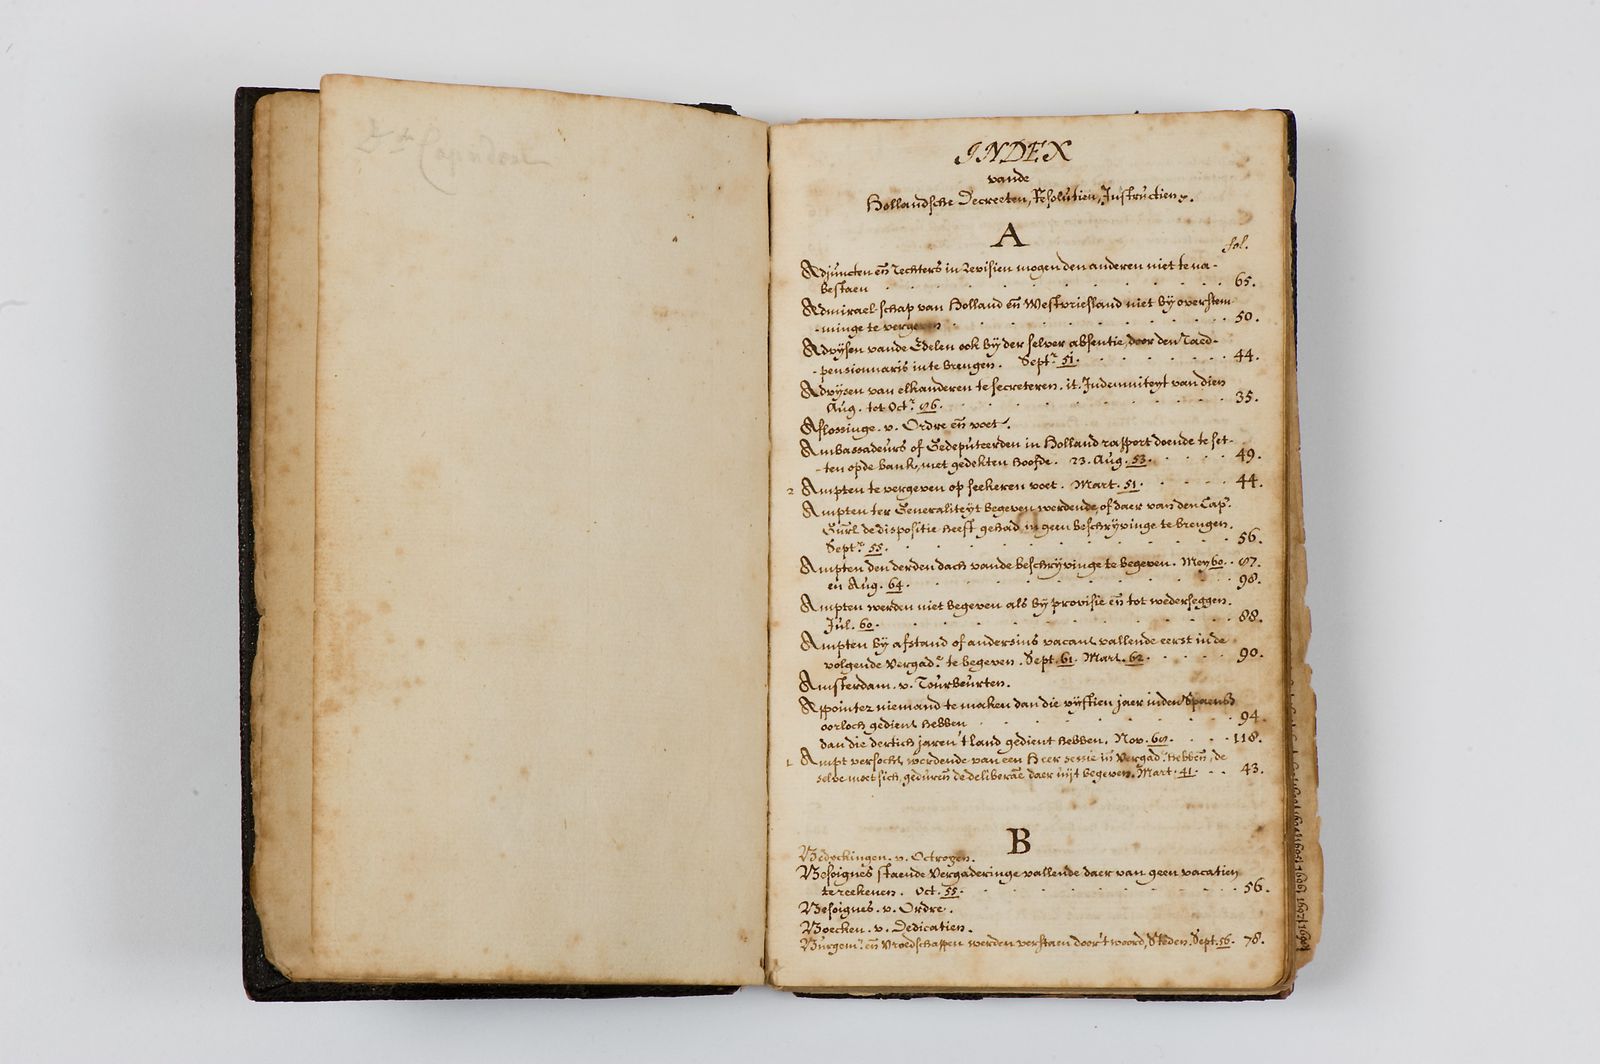 INDEX
vande
Hollandsche Decreeten, Resolutien, Instructien.
A
fol.
Adjuncten en̄ Rechters in Revisien mogen den anderen niet te na-
bestaen 65.
Admirael-schap van Holland en̄ Westvriesland niet by overstem-
-minge te vergeven 50.
Advysen vande Edelen ook by der selver absentie, door den Raed-
-pensionnaris in te brengen. Sept.r 51. 44.
Advysen van elkanderen te secreteren. it. Indemniteyt van dien
Aug. tot Oct.r 56. 35.
Aflossinge. v. Ordre en̄ voet.
Ambassadeurs of Gedeputeerden in Holland rapport doende te set-
-ten op de bank, met gedekten hoofde. 23. Aug. 53. 49.
2 Ampten te vergeven op seekeren voet. Mart. 51. 44.
Ampten ter Generaliteyt begeven werdende, of daer van den Cap.n
Gnrl de dispositie heeft gehad, in geen beschryvinge te brengen.
Sept.r 55. 56.
Ampten den derden dach vande beschryvinge te begeven. Mey 60. 87.
en Aug. 64. 98.
Ampten werden niet begeven als by provisie en̄ tot wederseggen.
Jul. 60. 88.
Ampten by afstand of andersins vacant vallende eerst in de
volgende Vergad.e te begeven. Sept. 61. Mart. 62. 90.
Amsterdam. v. Tourbeurten.
Appointez niemand te maken dan die vyftien jaer inden Spaens
oorloch gedient hebben 94.
dan die dertich jaren 't land gedient hebben. Nov. 69. 118.
1 Ampt versocht werdende van een Heer sessie in Vergad.e hebben̄, de
selve moet sich, geduren̄ de deliberāe daer uyt begeven. Mart. 41. 43.
B
Bedyckingen. v. Octroyen.
Besoignes staende Vergaderinge vallende daer van geen vacatien
te reekenen. Oct. 55. 56.
Besoignes. v. Ordre.
Boecken. v. Dedicatien.
Burgem.r en̄ Vroedschappen werden verstaen door 't woord, Steden. Sept. 56. 78.